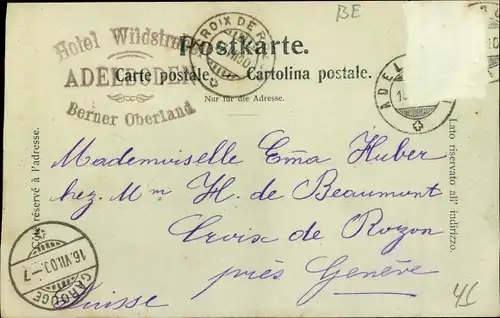 BE
Hotel Wildstrubel
ADELBODEN
Berner Oberland
CROIX DE
Postkarte.
Carte postale. Cartolina postale.
Nur für die Adresse.
ADEL
Côté réservé à l'adresse.
Lato riservato all' indirizzo.
Mademoiselle Ema Huber
chez. Mm H. de Beaumont
Croix de Rozon
près Genève
Suisse
16.VII.00.-7
CAROUGE